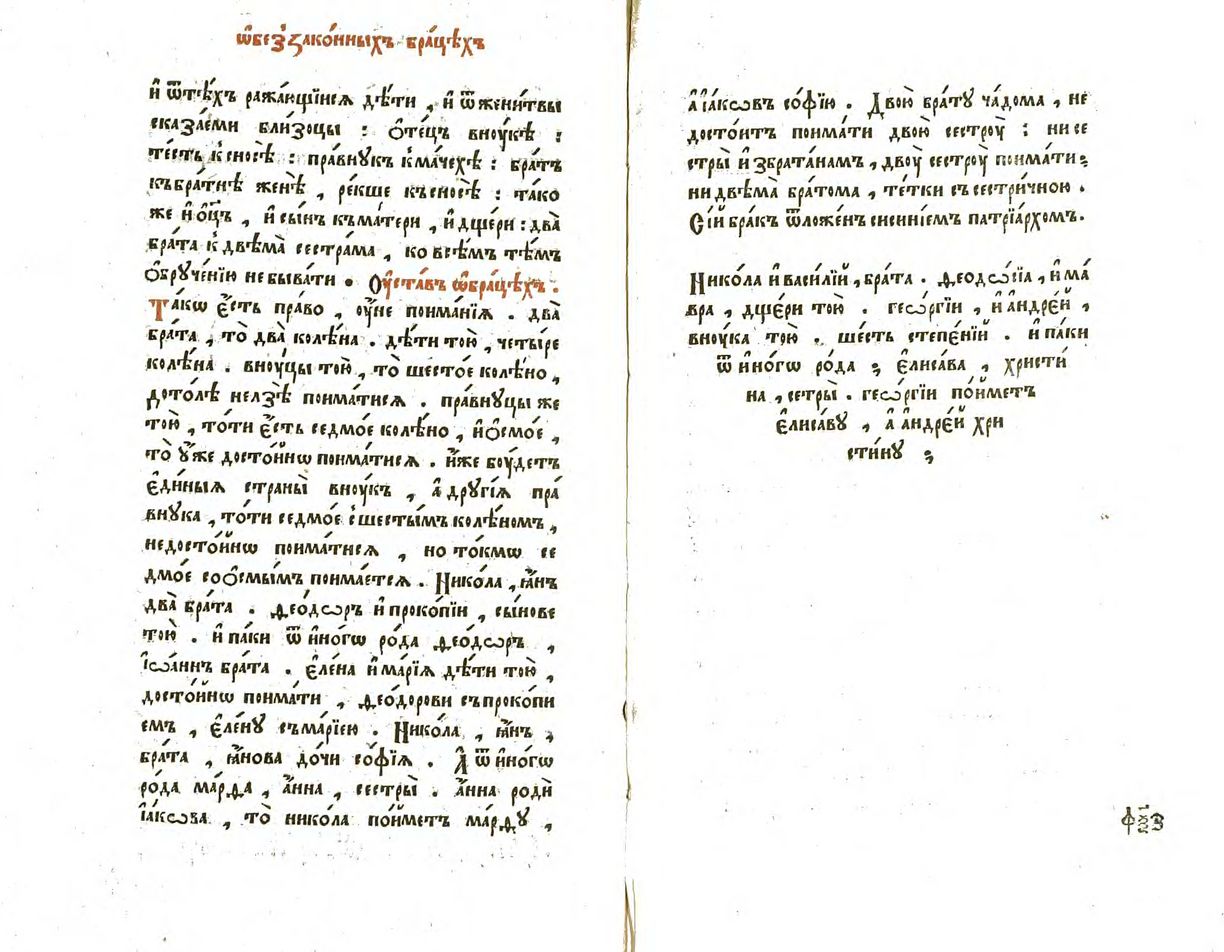 ѡ҆беззако́нныхъ бра́цѣхъ
и҆ ѿтѣ́хъ ража́ющїисѧ дѣ́ти , и҆ ѿжени́твы
сказа́еми бли́зоцы : ѻ҆те́цъ внꙋ́кѣ :
те́сть к̾сносѣ̀ : пра́внꙋкъ к̾ма́чехѣ : бра́тъ
къбра́тнѣ женѣ̀ , ре́кше къносѣ̀ : та́ко
же и҆ ѻ҆ц҃ъ , и҆ сы́нъ къма́тери , и҆ дще́ри : два̀
бра́та к̾ двѣма̀ сестра́ма , ко всѣ́мъ тѣ́мъ
ѻ҆брꙋче́нїю не быва́ти . Оу҆ста́въ ѡ҆бра́цѣхъ .
Та́кѡ є҆́сть пра́во , оу҆́не поима́нїѧ . два̀
бра́та , то̀ два̀ колѣ́на . дѣ́ти тою̀ , четы́ре
колѣ́на . внꙋ́цы тою̀ , то̀ шесто́е колѣ́но ,
дото́лѣ нелзѣ̀ поима́тисѧ . пра́внꙋцы же
тою̀ , то́ти є҆́сть седмо́е колѣ́но , и҆ ѻ҆смо́е ,
то̀ ᲂу҆́же досто́йнѡ поима́тисѧ . и҆́же бꙋ́детъ
є҆ди́ныѧ страны̀ внꙋ́къ , а҆ дрꙋгі́ѧ пра́
внꙋка , то́ти седмо́е с̾шесты́мъ колѣ́номъ ,
недосто́йнѡ поима́тисѧ , но то́кмѡ се
дмо́е соѻсмы́мъ поима́етсѧ . Нико́ла , ꙗ҆́нъ
два̀ бра́та . ѳео́дѡръ и҆ проко́пїи , сы́нове
тою̀ . и҆ па́ки ѿ и҆но́гѡ ро́да ѳео́дѡръ ,
і҆ѡа́ннъ бра́та . є҆ле́на и҆ ма́рїѧ дѣ́ти тою̀ ,
досто́йнѡ поима́ти , ѳео́дорови съ проко́пи
емъ , є҆ле́нꙋ съма́рїею . Нико́ла , ꙗ҆́нъ ,
бра́та , ꙗ҆́нова до́чи со́фїѧ . А҆ ѿ и҆но́гѡ
ро́да ма́рѳа , а҆́нна , сестры̀ . а҆́нна родѝ
і҆а́кѡва , то̀ нико́ла по́йметъ ма́рѳꙋ ,
а҆ і҆а́кѡвъ со́фїю . Двою̀ бра́тꙋ ча́дома , не
досто́итъ поима́ти двою̀ сестрꙋ̀ : ни се
стры̀ и҆ збрата́намъ , двꙋ̀ сестрꙋ̀ поима́ти ;
ни двѣ́ма бра́тома , те́тки съ сестри́чною .
Сі́й бра́къ ѿложе́нъ сисині́емъ патрїа́рхомъ .
Нико́ла и҆ васи́лїй , бра́та . ѳеодѡ́сїа , и҆ ма́
вра , дще́ри тою̀ . геѡ́ргїи , и҆ а҆ндре́й ,
внꙋ́ка тою̀ . ше́сть степе́нїй . и҆ па́ки
ѿ и҆но́гѡ ро́да ; є҆лиса́ва , христи́
на , сетры̀ . геѡ́ргїи по́йметъ
є҆лиса́вꙋ , а҆ а҆ндре́й хри
сти́нꙋ ;